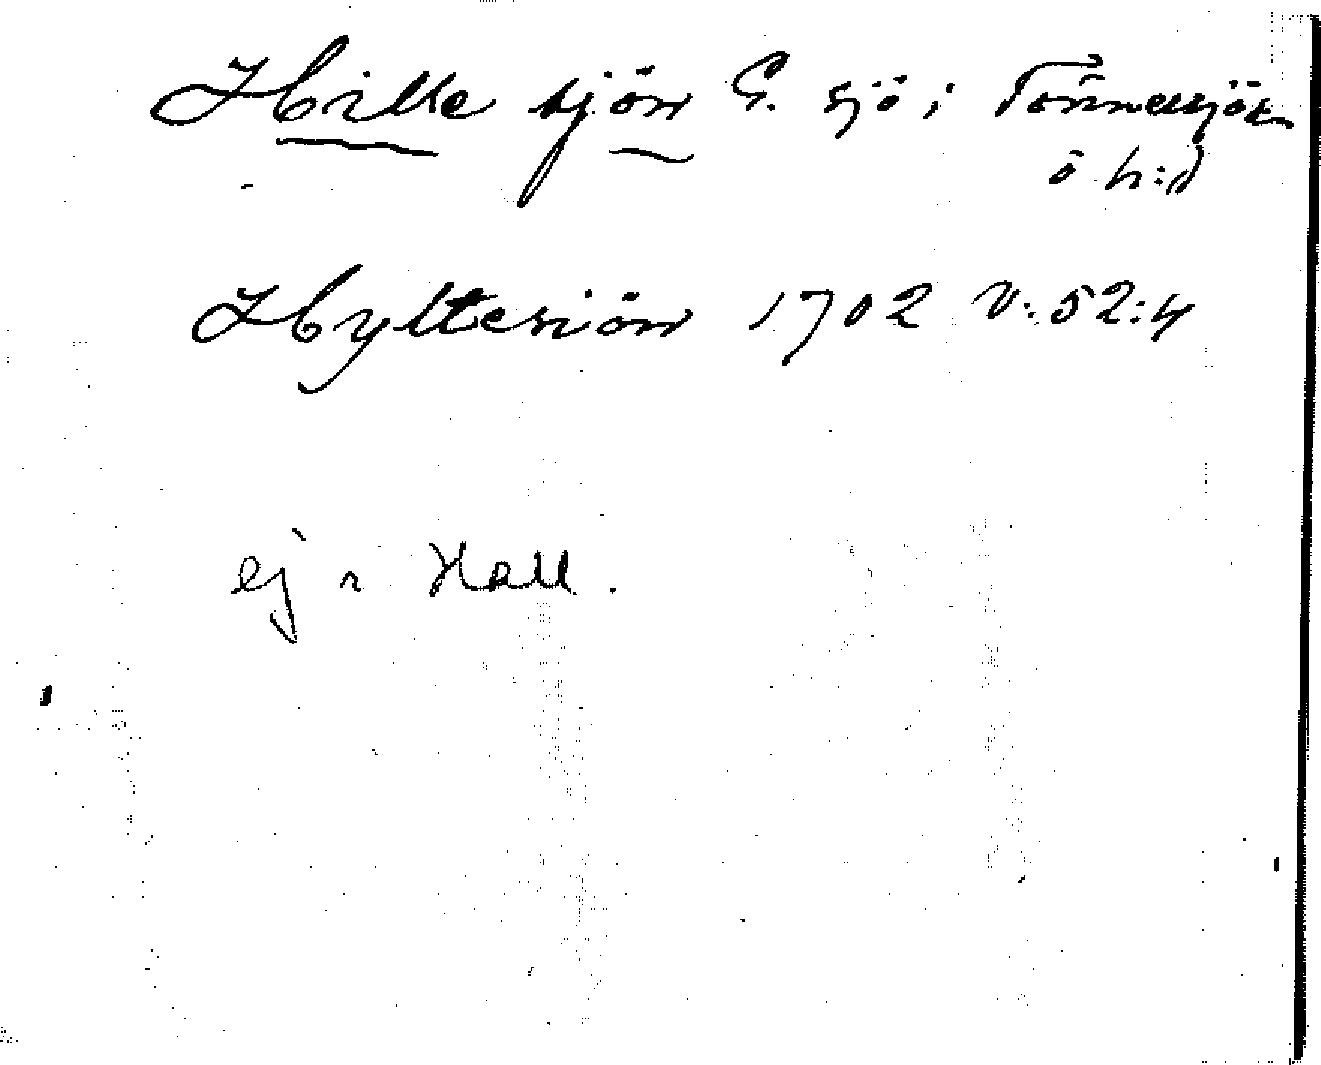 Hilke sjön G. sjö i Tönnersjök
ö h:d
Hyltesiön 1702 V:52:4
ej i Hall.